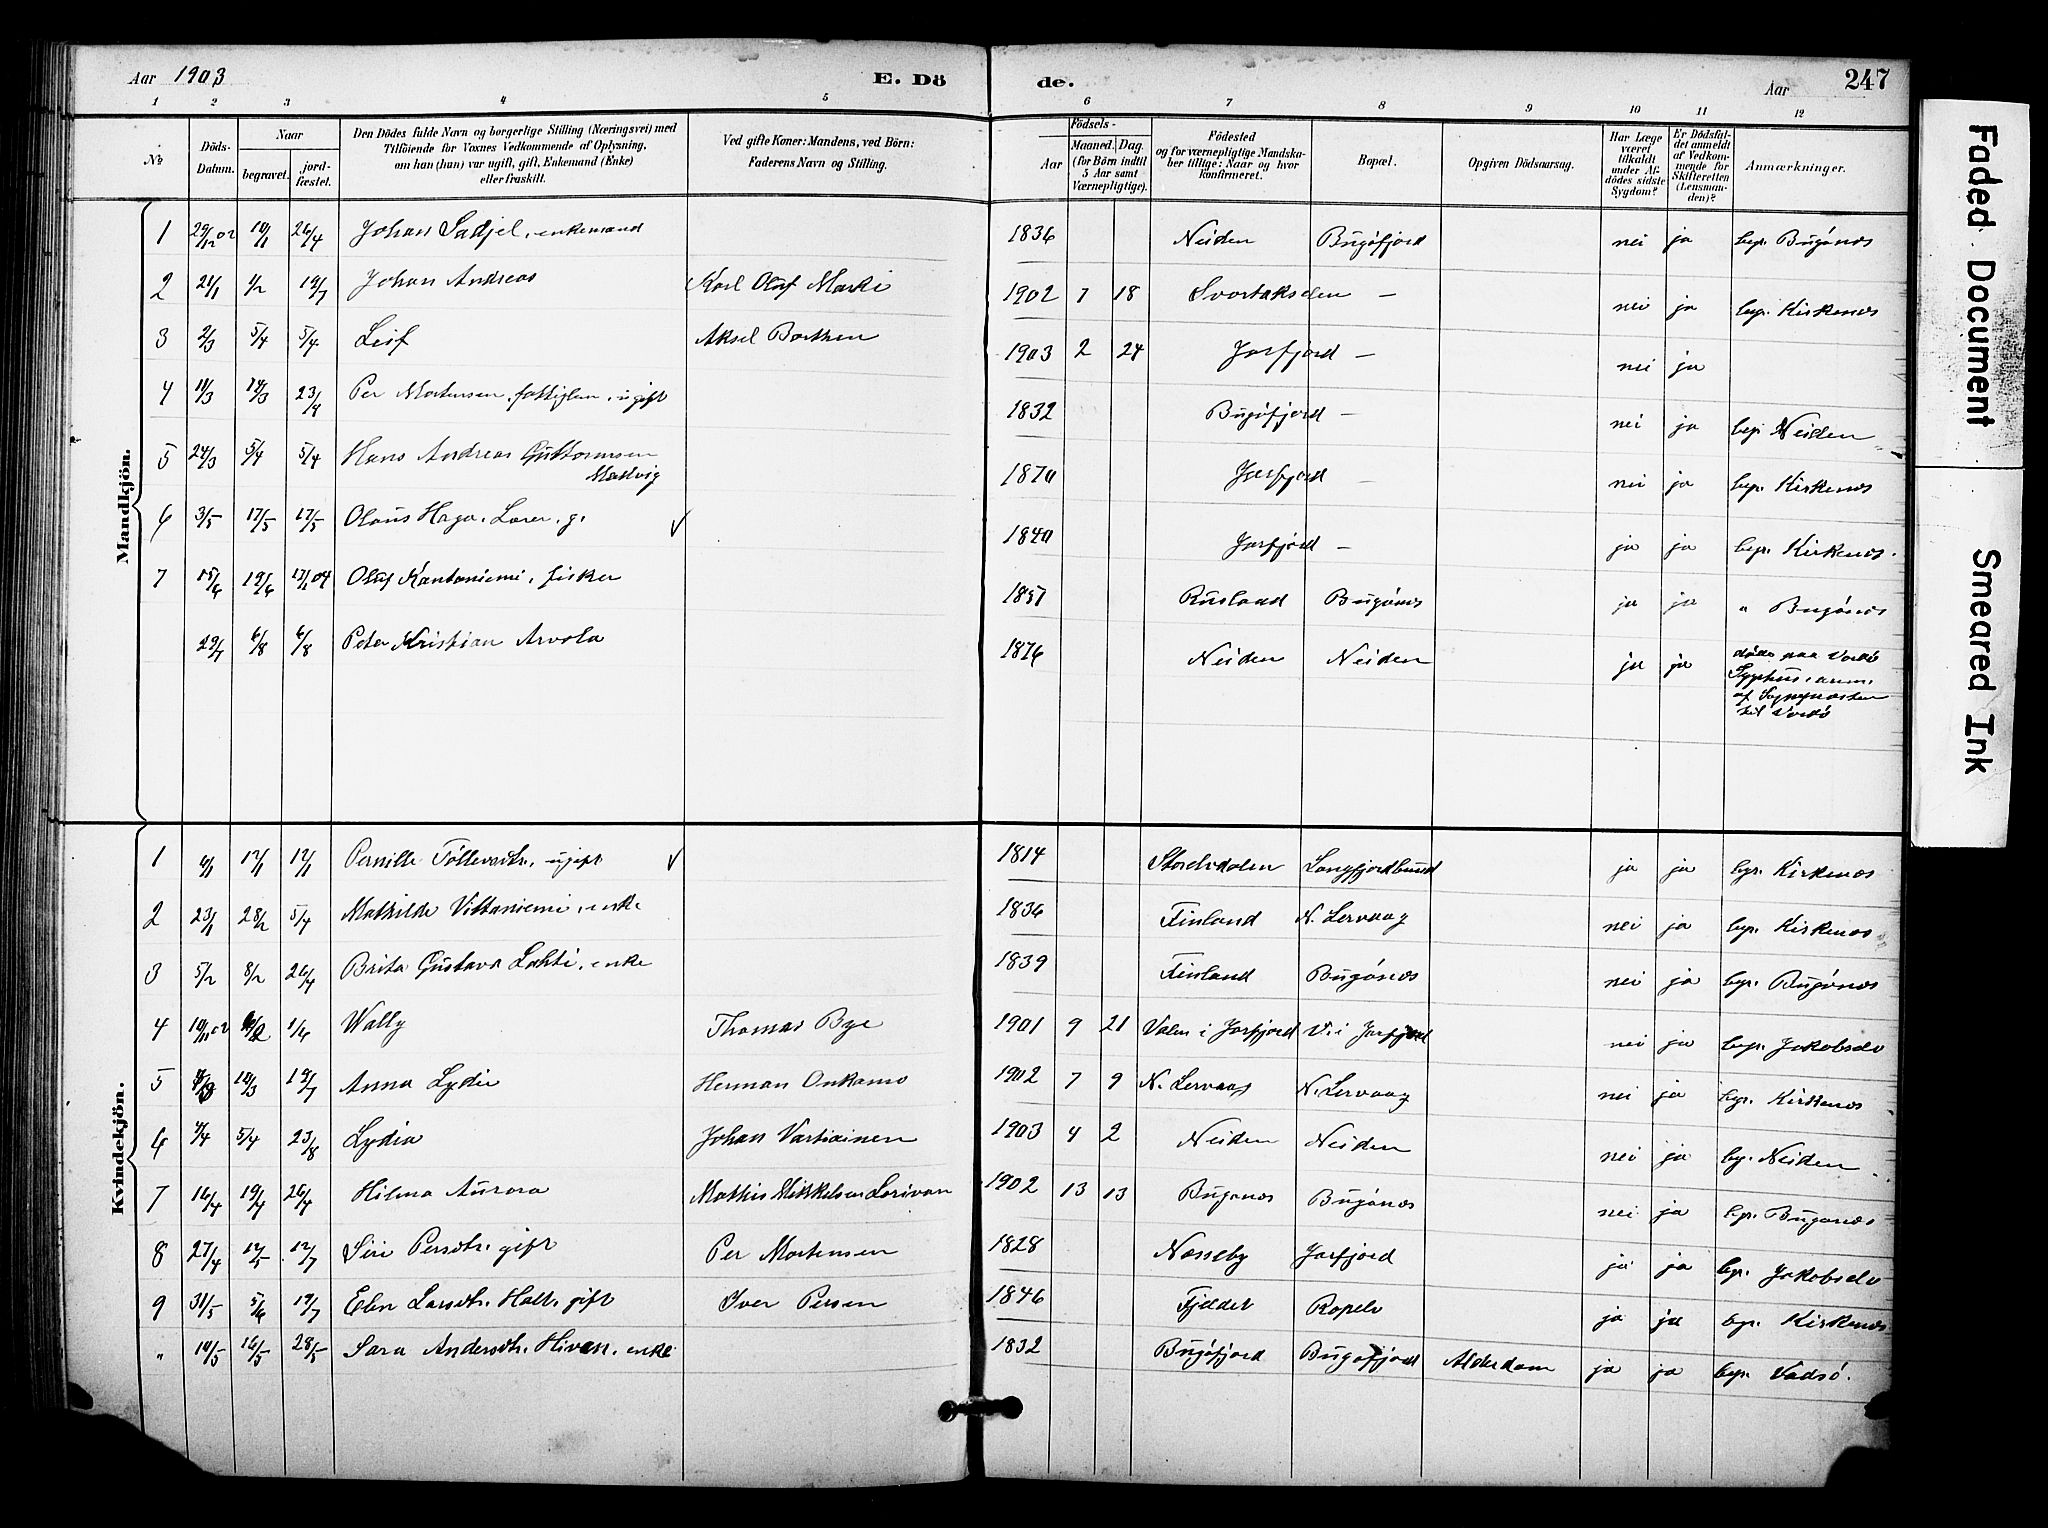 Aar 1903 E. Dö de. Aar 247
1 2 3 4 5 6 7 8 9 10 11 12
No
Döds-Datum.
Naar
begravet.
jord-fæstet.
Den Dödes fulde Navn og borgerlige Stilling (Næringsvei) med
Tilföiende for Voxnes Vedkommende af Oplysning,
om han (hun) var ugift, gift, Enkemand (Enke)
eller fraskilt.
Ved gifte Koner: Mandens, ved Börn:
Faderens Navn og Stilling.
Födsels-
Aar
Maaned. Dag.
(for Börn indtil
5 Aar samt
Værnepligtige).
Födested
og for værnepligtige Mandska-
ber tillige: Naar og hvor
konfirmeret.
Bopæl.
Opgiven Dödsaarsag.
Har Læge
været
tilkaldt
under Af-
dödes sidste
Sygdom?
Er Dödsfal-
det anmeldt
af Vedkom-
mende for
Skifteretten
(Lensman-
den)?
Anmærkninger.
Mandkjön.
1 29/12 02 10/1 26/4 Johan Sadjel, enkemand 1836 Neiden Bugöfjord nei ja begr. Bugönes
2 21/1 1/2 19/7 Johan Andreas Karl Oluf Marki 1902 7 18 Svartaksden — nei ja begr. Kirkenes
3 2/3 5/4 5/4 Leif Aksel Borthen 1903 2 24 Jarfjord — nei ja
4 11/3 14/3 23/4 Per Mortensen, fattiglem, ugift 1832 Bugöfjord — nei ja begr. Neiden
5 24/3 5/4 5/4 Hans Andreas Guttormsen
Mathvig 1870 Jarfjord — nei ja begr. Kirkenes
6 3/5 17/5 17/5 Olaus Haga, Larer, g. ✓ 1840 Jarfjord — ja ja begr. Kirkenes.
7 15/6 19/6 17/1 04 Oluf Kantoniemi, fisker 1857 Rusland Bugönes ja ja " Bugönes
29/7 6/8 6/8 Peter Kristian Arvola 1876 Neiden Neiden ja ja döde paa Vardö
Typhus, anm.
af Sognepræsten
til Vardö
Kvindekjön.
1 6/1 12/1 12/1 Pernille Tollevsdtr., ugift ✓ 1814 Stordalen Langfjordbund ja ja begr. Kirkenes
2 23/1 28/2 5/4 Mathilde Vittaniemi, enke 1836 Finland N. Lervaag nei ja begr. Kirkenes
3 5/2 8/2 26/4 Brita Gustava Lahti, enke 1839 Finland Bugönes nei ja begr. Bugönes
4 10/11 02 1/6 Wally Thomas Bye 1901 9 21 Valen i Jarfjord V. i Jarfjord nei ja begr. Jakobselv
5 10/3 19/7 Anna Lydia Herman Onkamo 1902 7 9 N. Lervaag N. Lervaag nei ja begr. Kirkenes
6 4/4 5/4 23/8 Lydia Johan Vartiainen 1903 4 2 Neiden Neiden nei ja begr. Neiden
7 16/4 19/4 26/4 Hilma Aurora Mathis Mikkelsen Lorivan 1902 13 13 Bugönes Bugönes nei ja begr. Bugönes
8 27/4 12/5 12/7 Siri Persdtr. gift Per Mortensen 1828 Næsseby Jarfjord ja ja begr. Jakobselv
9 31/5 5/6 19/7 Elen Larsdtr. Halt, gift Iver Persen 1846 Fjeldet Ropelv ja ja begr. Kirkenes
" 10/5 16/5 28/5 Sara Andersdtr. Hiven, enke 1832 Bugöfjord Bugöfjord Alderdom ja ja begr. Vadsö.
Faded Document
Smeared Ink